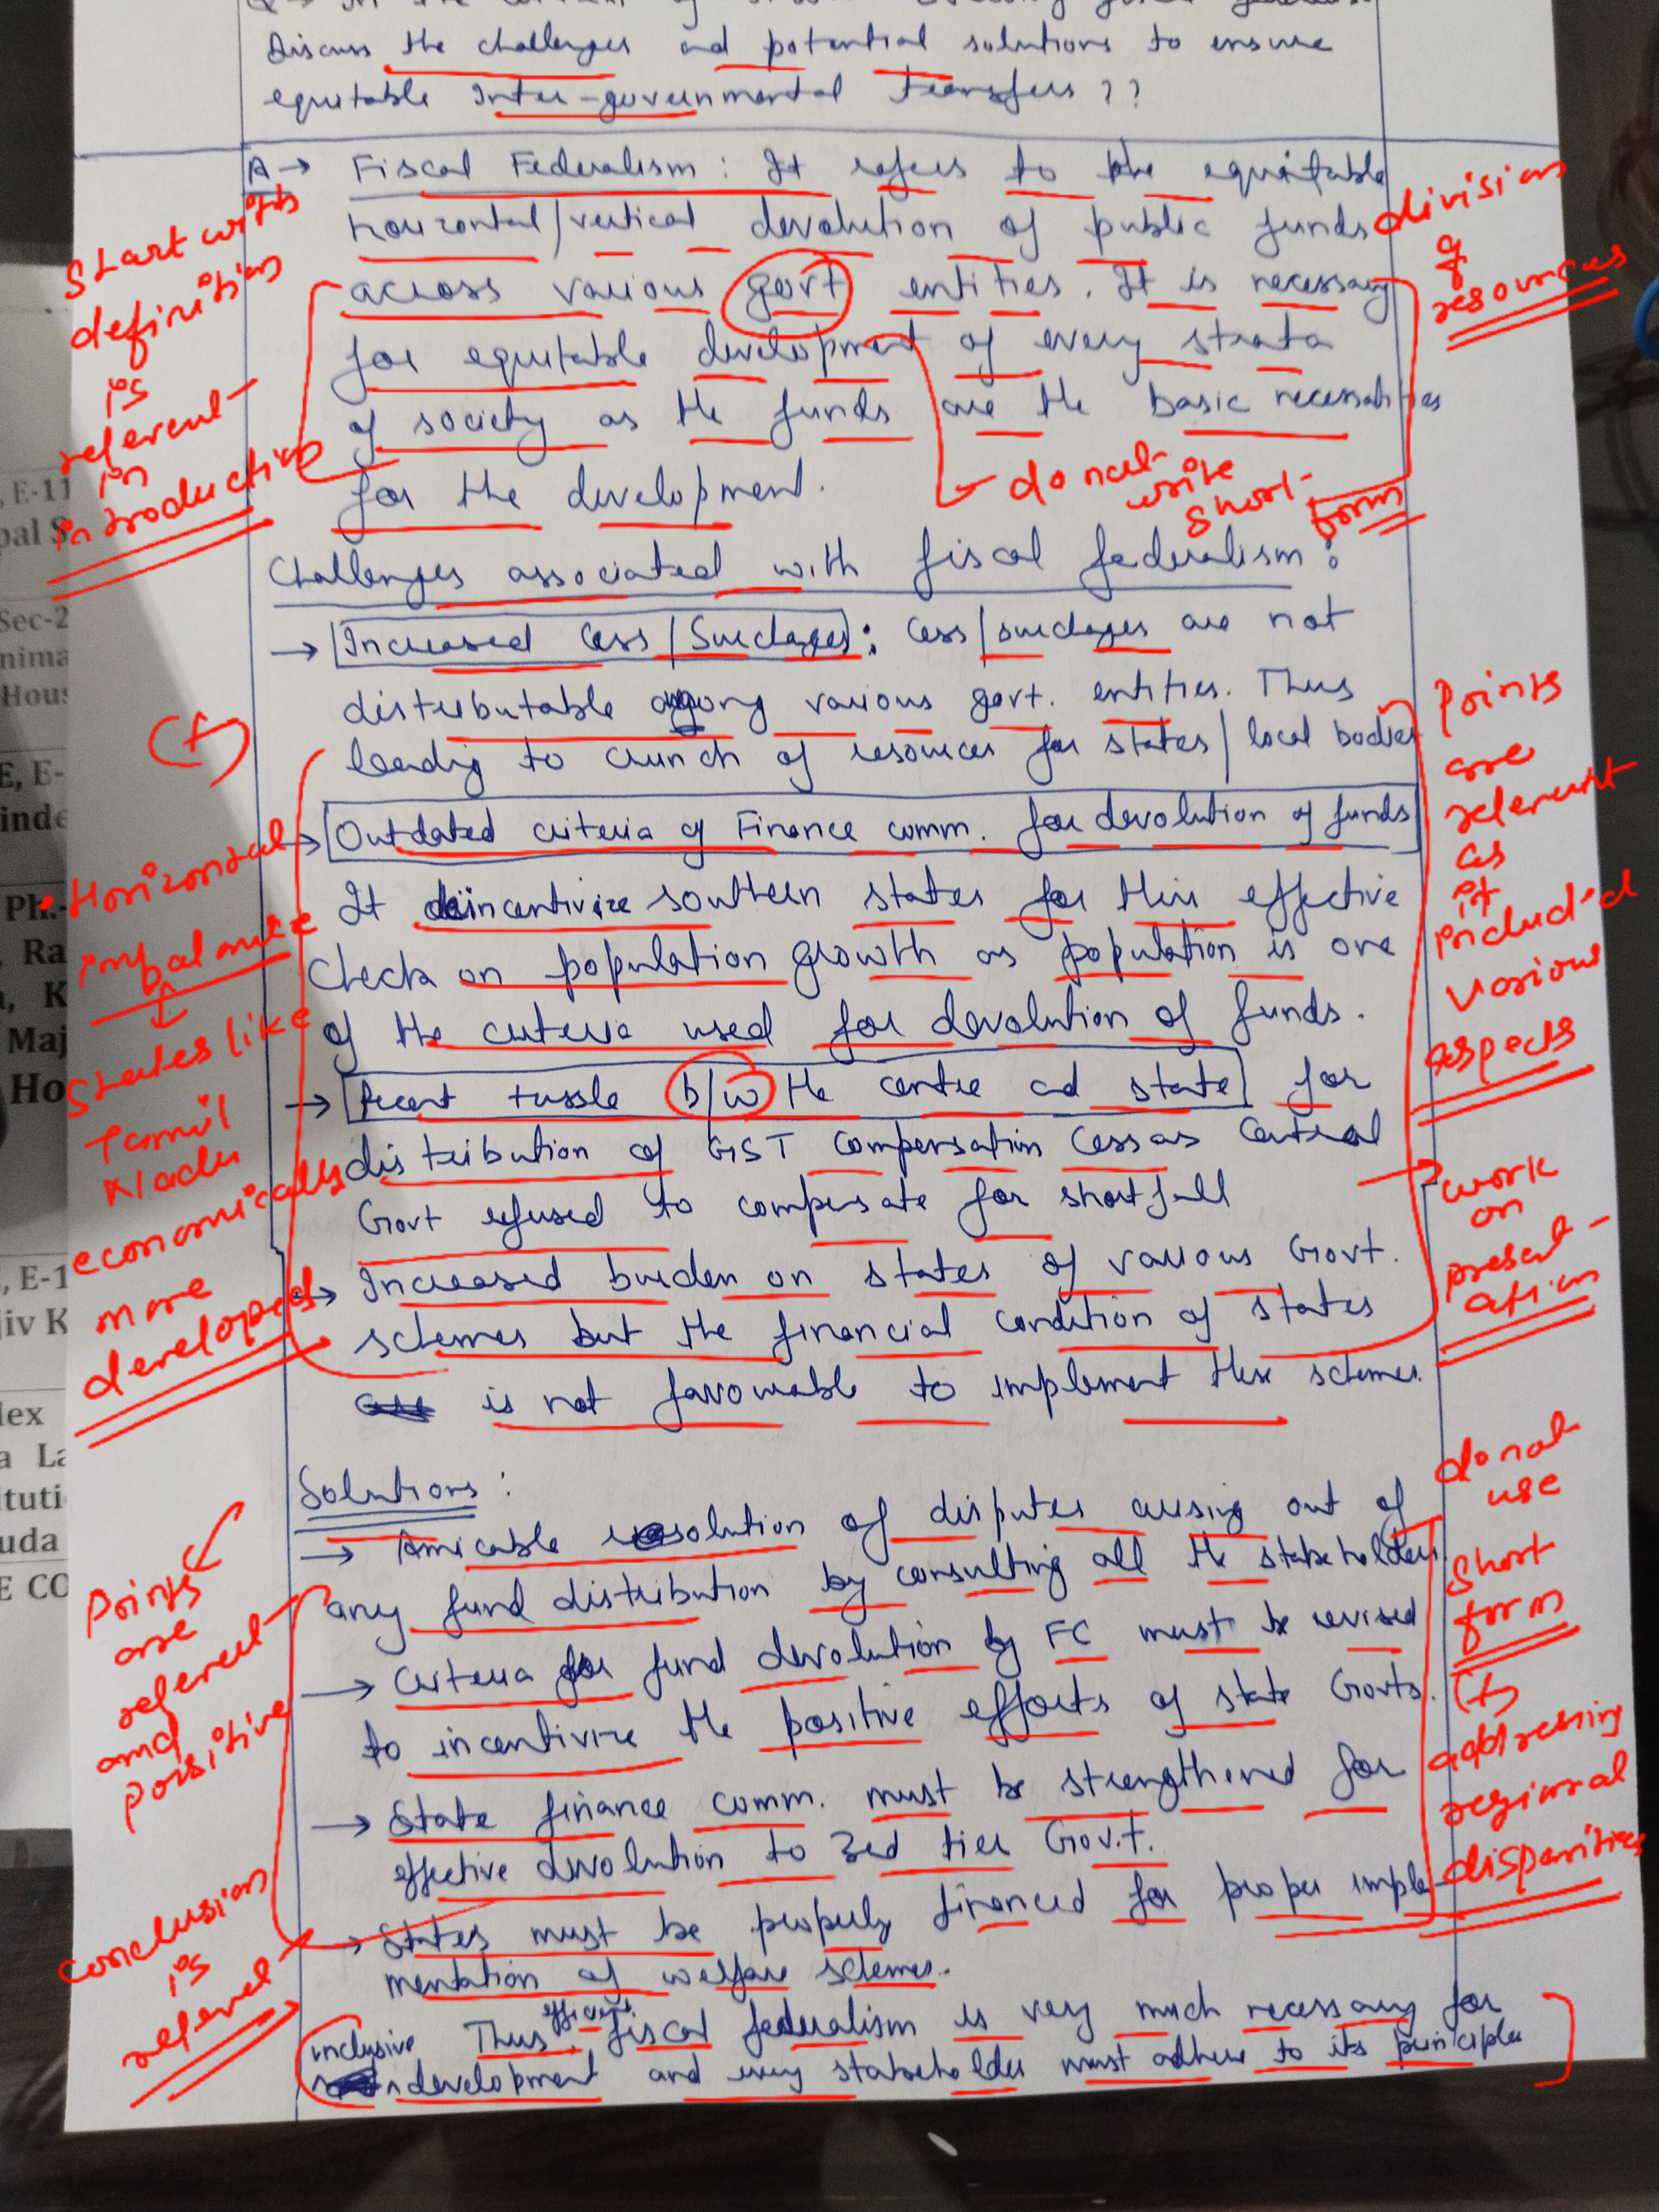 Discuss the challenges and potential solutions to ensure
equitable Inter-governmental transfers ??
A → Fiscal Federalism : It refers to the equitable
horizontal/vertical devolution of public funds
across various govt entities. It is necessary
for equitable development of every strata
of society as the funds are the basic necessities
for the development.
Start with
definition
is
relevent
in
introduction
division
of
resources
do not
write
short-
form
Challenges associated with fiscal federalism :
→ Increased Cess/Surcharges : Cess/surcharges are not
distributable among various govt. entities. Thus
leading to crunch of resources for states/local bodies
→ Outdated criteria of Finance comm. for devolution of funds
It deincentivize southern states for their effective
check on population growth as population is one
of the criteria used for devolution of funds.
→ Recent tussle b/w the centre and state for
distribution of GST compensation Cess as Central
Govt refused to compensate for shortfall
→ Increased burden on states of various Govt.
schemes but the financial condition of states
is not favourable to implement these schemes.
(+)
• Horizontal
imbalance
States like
Tamil
Nadu
economically
more
developed
Points
are
relevent
as
it
included
various
aspects
work
on
present-
ation
Solutions :
→ Amicable resolution of disputes arising out of
any fund distribution by consulting all the stakeholders.
→ Criteria for fund devolution by FC must be revised
to incentivize the positive efforts of state Govts.
→ State finance comm. must be strengthened for
effective devolution to 3rd tier Gov.t.
→ States must be properly financed for proper imple-
mentation of welfare schemes.
Thus efficient fiscal federalism is very much necessary for
inclusive development and every stakeholder must adhere to its principles
Points
are
relevent
and
positive
conclusion
is
relevel
do not
use
short
form
(+)
addressing
regional
disparities
, E-11
pal S
Sec-2
nima
Hous
E, E-
inde
Ph.-
Ra
, K
Maj
Ho
, E-1
jiv K
lex
a La
ituti
uda
E CO